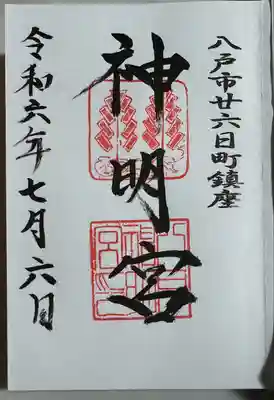 八戸市廿六日町鎮座
神明宮
令和六年七月六日